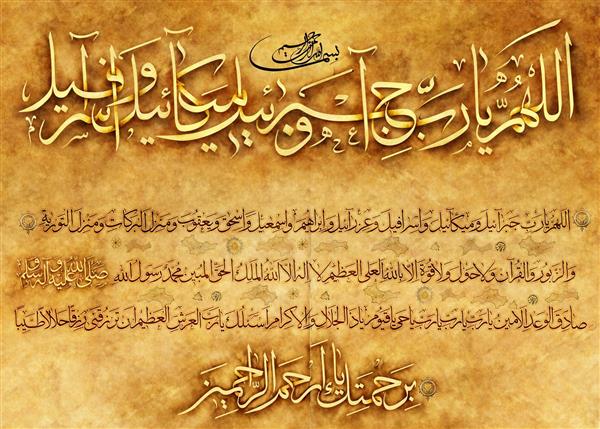 بسم الله الرحمن الرحيم
اللهم يا رب جبرآئيل و ميكآئيل و اسرآفيل
اللهم يا رب جبرآئيل وميكآئيل واسرافيل وعزرآئيل وابراهيم واسمعيل واسحق ويعقوب ومنزل البركات ومنزل التورية
والزبور والقرآن ولاحول ولاقوة الا بالله العلي العظيم لا اله الا الله الملك الحق المبين محمد رسول الله صلى الله عليه وآله وسلم
صادق الوعد الامين يارب يارب يارب ياحي ياقيوم ياذالجلال والاكرام اسئلك يارب العرش العظيم ان ترزقني رزقا حلالا طيبا
برحمتك يا ارحم الراحمين